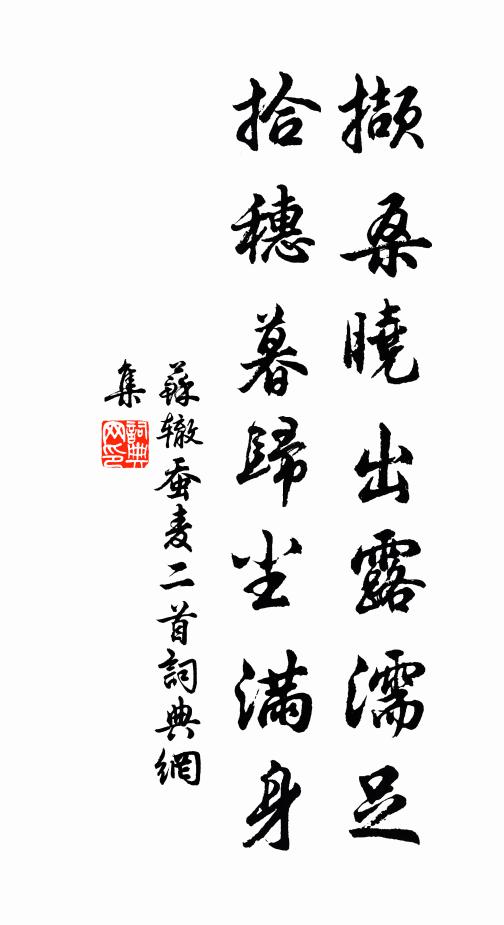 擷桑曉出露濡足
拾穗暮歸尘滿身
蘇辙蚕麦二首詞典網
集
詞典
网印